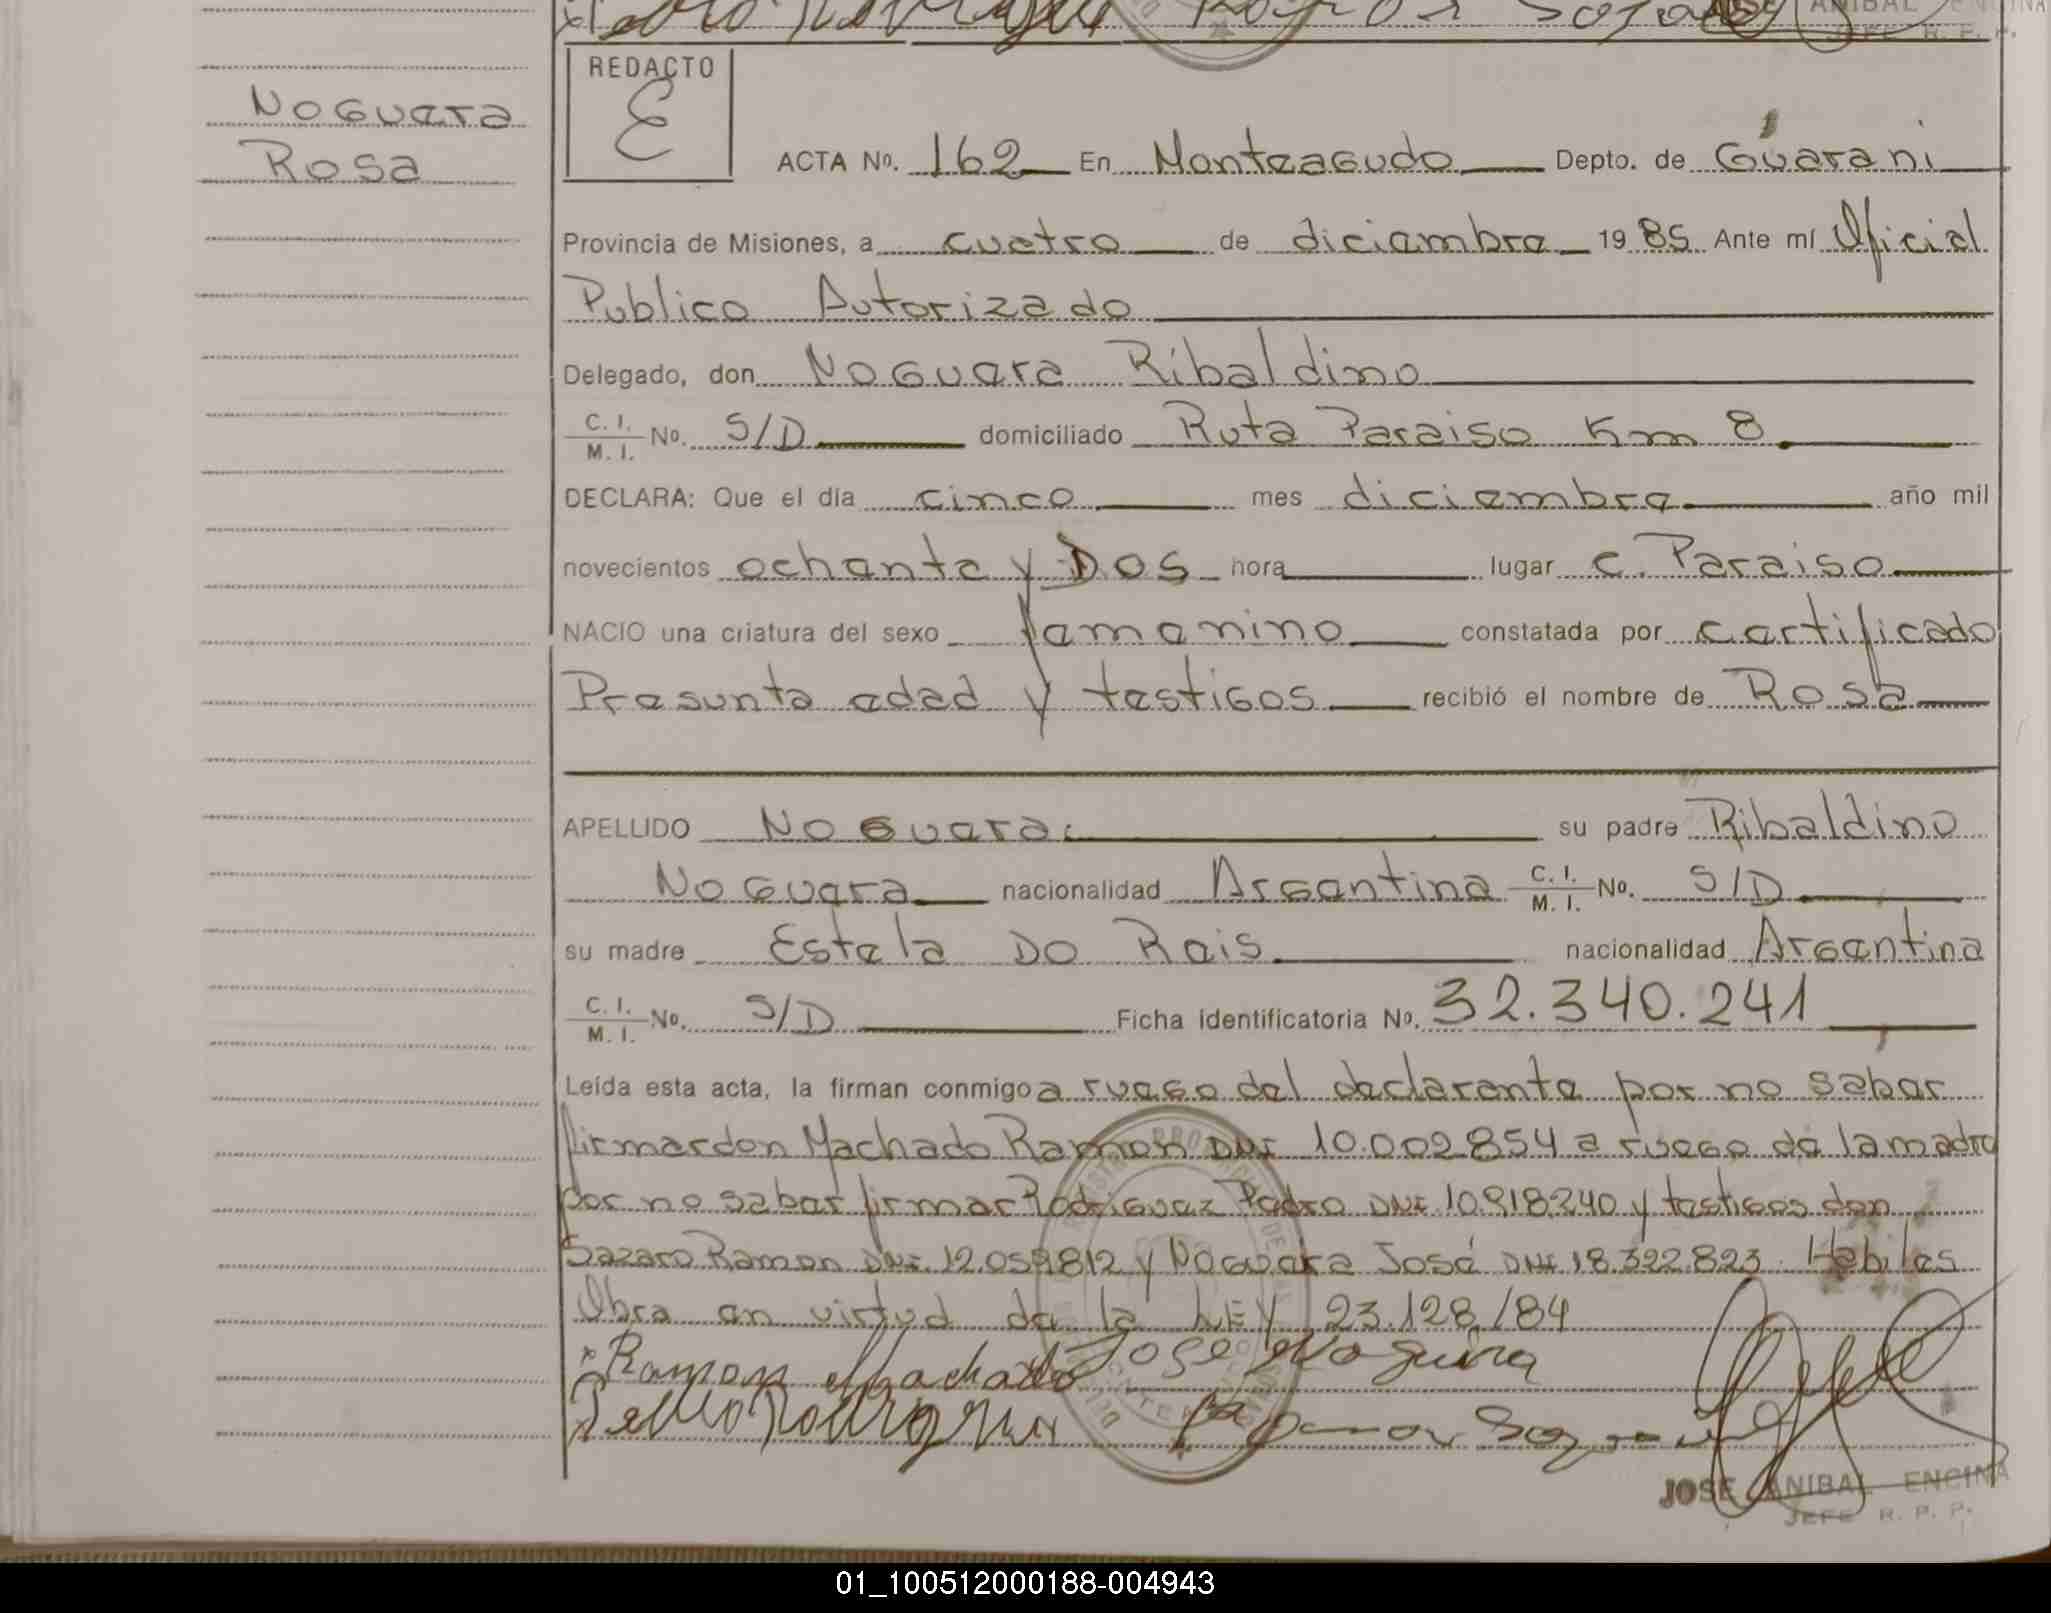 JOSE ANIBAL ENCINA
JEFE R. P. P.
Noguera
Rosa
REDACTO
E
ACTA No. 162 En Monteagudo Depto. de Guarani
Provincia de Misiones, a cuatro de diciembre 1985 Ante mí Oficial
Publico Autorizado
Delegado, don Noguera Ribaldino
C. I. / M. I. No. S/D domiciliado Ruta Paraiso Km 8
DECLARA: Que el día cinco mes diciembre año mil
novecientos ochenta y Dos hora lugar C. Paraiso
NACIO una criatura del sexo femenino constatada por certificado
Presunta edad y testigos recibió el nombre de Rosa
APELLIDO Noguera su padre Ribaldino
Noguera nacionalidad Argentina C. I. / M. I. No. S/D
su madre Estela Do Reis nacionalidad Argentina
C. I. / M. I. No. S/D Ficha identificatoria No. 32.340.241
Leída esta acta, la firman conmigo a ruego del declarante por no saber
firmar don Machado Ramon DNI 10.002.854 a ruego de la madre
por no saber firmar Rodriguez Pedro DNI 10.918.240 y testigos don
Sazaro Ramon DNI 12.059.812 y Noguera José DNI 18.322.823 Habiles
Obra en virtud de la LEY 23.128/84
Ramon Machado Jose Noguera
Pedro Rodriguez Ramon
JOSE ANIBAL ENCINA
JEFE R. P. P.
01_100512000188-004943